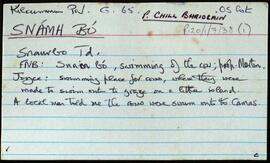 Kilcummin Pd. G. 65. P. CHILL BHRIOCÁIN OS Cat
SNÁMH BÓ P.20/1/3/38 (1)
Snauvbo Td.
FNB: Snámh bó, swimming of the cow, prop. Martin.
Joyce: swimming place for cows, when they were
made to swim out to graze on a little island.
A local man told me the cows were swum out to Canas.